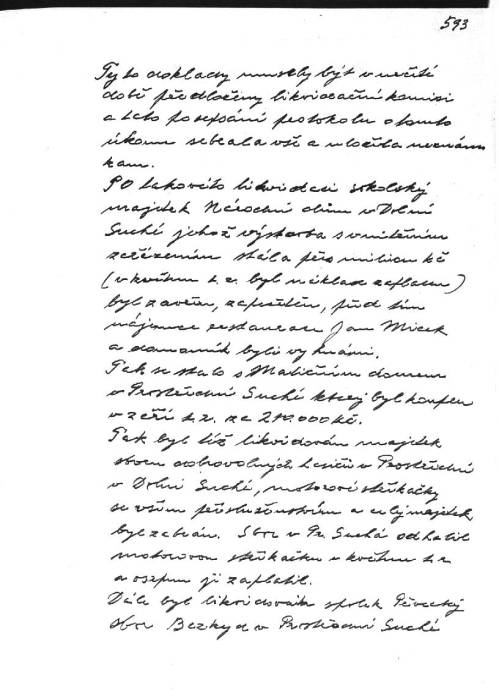 593
Tyto doklady musely být v určité
době předloženy likvidační komisi
a tato po sepsání protokolu o tomto
úkonu sebrala vše a uložila neznámo
kam.
Po takovéto likvidaci sokolský
majetek Národní dům v Dolní
Suché jehož výstavba s vnitřním
zařízením stála přes milion kč
(v květnu t.r. byl náklad zaplacen)
byl zavřen, zapečetěn, před tím
nájemce restaurace Jan Micek
a domovník byli vyhnáni.
Tak se stalo s Matičním domem
v Prostřední Suché který byl koupen
v září t.r. za 210.000 kč.
Tak byl též likvidován majetek
sboru dobrovolných hasičů v Prostřední
v Dolní Suché, motorové stříkačky
se vším příslušenstvím a celý majetek
byl zabrán. Sbor v Pr. Suchá odhalil
motorovou stříkačku v květnu t.r
a v srpnu ji zaplatil.
Dále byl likvidován spolek Pěvecký
sbor Bezkyd v Prostřední Suché